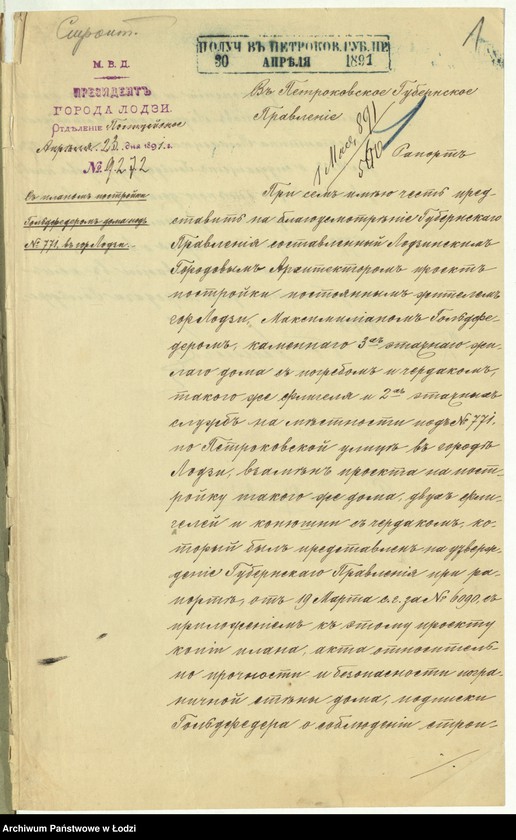 Строит.
1
ПОЛУЧ. ВЪ ПЕТРОКОВ. ГУБ. ПР.
30 АПРѢЛЯ 1891
М. В. Д.
ПРЕЗИДЕНТЪ
ГОРОДА ЛОДЗИ.
Отдѣленіе Полицейское
Апрѣля 23 дня 1891 г.
№ 9272
Съ планомъ постройки
Гольдфедеромъ дома подъ
№ 771 въ гор. Лодзи.
Въ Петроковское Губернское
Правленіе
1 Мая 891
Рапортъ
При семъ имѣю честь пред-
ставить на благоусмотрѣніе Губернскаго
Правленія составленный Лодзинскимъ
Городовымъ Архитекторомъ проектъ
постройки постояннымъ жителемъ
гор. Лодзи, Максимиліаномъ Гольдфе-
деромъ, каменнаго 3хъ этажнаго жи-
лаго дома съ погребомъ и чердакомъ,
такого же флигеля и 2хъ этажныхъ
службъ на мѣстности подъ № 771,
по Петроковской улицѣ въ городѣ
Лодзи, взамѣнъ проекта на пост-
ройку такого же дома, двухъ фли-
гелей и конюшни съ чердакомъ, ко-
торый былъ представленъ на утверж-
деніе Губернскаго Правленія при ра-
портѣ, отъ 19 Марта с.г. за № 6090, съ
приложеніемъ къ этому проекту
копіи плана, акта относитель-
но прочности и безопасности погра-
ничной стѣны дома, подписки
Гольдфедера о соблюденіи строи-
Archiwum Państwowe w Łodzi